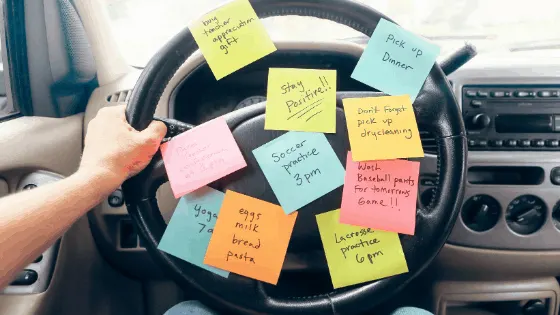 buy
teacher
appreciation
gift
Pick up
Dinner
Stay
Positive!!
Don't Forget
pick up
drycleaning
Soccer
practice
3 pm
Wash
Baseball pants
for tomorrows
Game!!!
Yoga
7a
eggs
milk
bread
pasta
Lacrosse
practice
6 pm